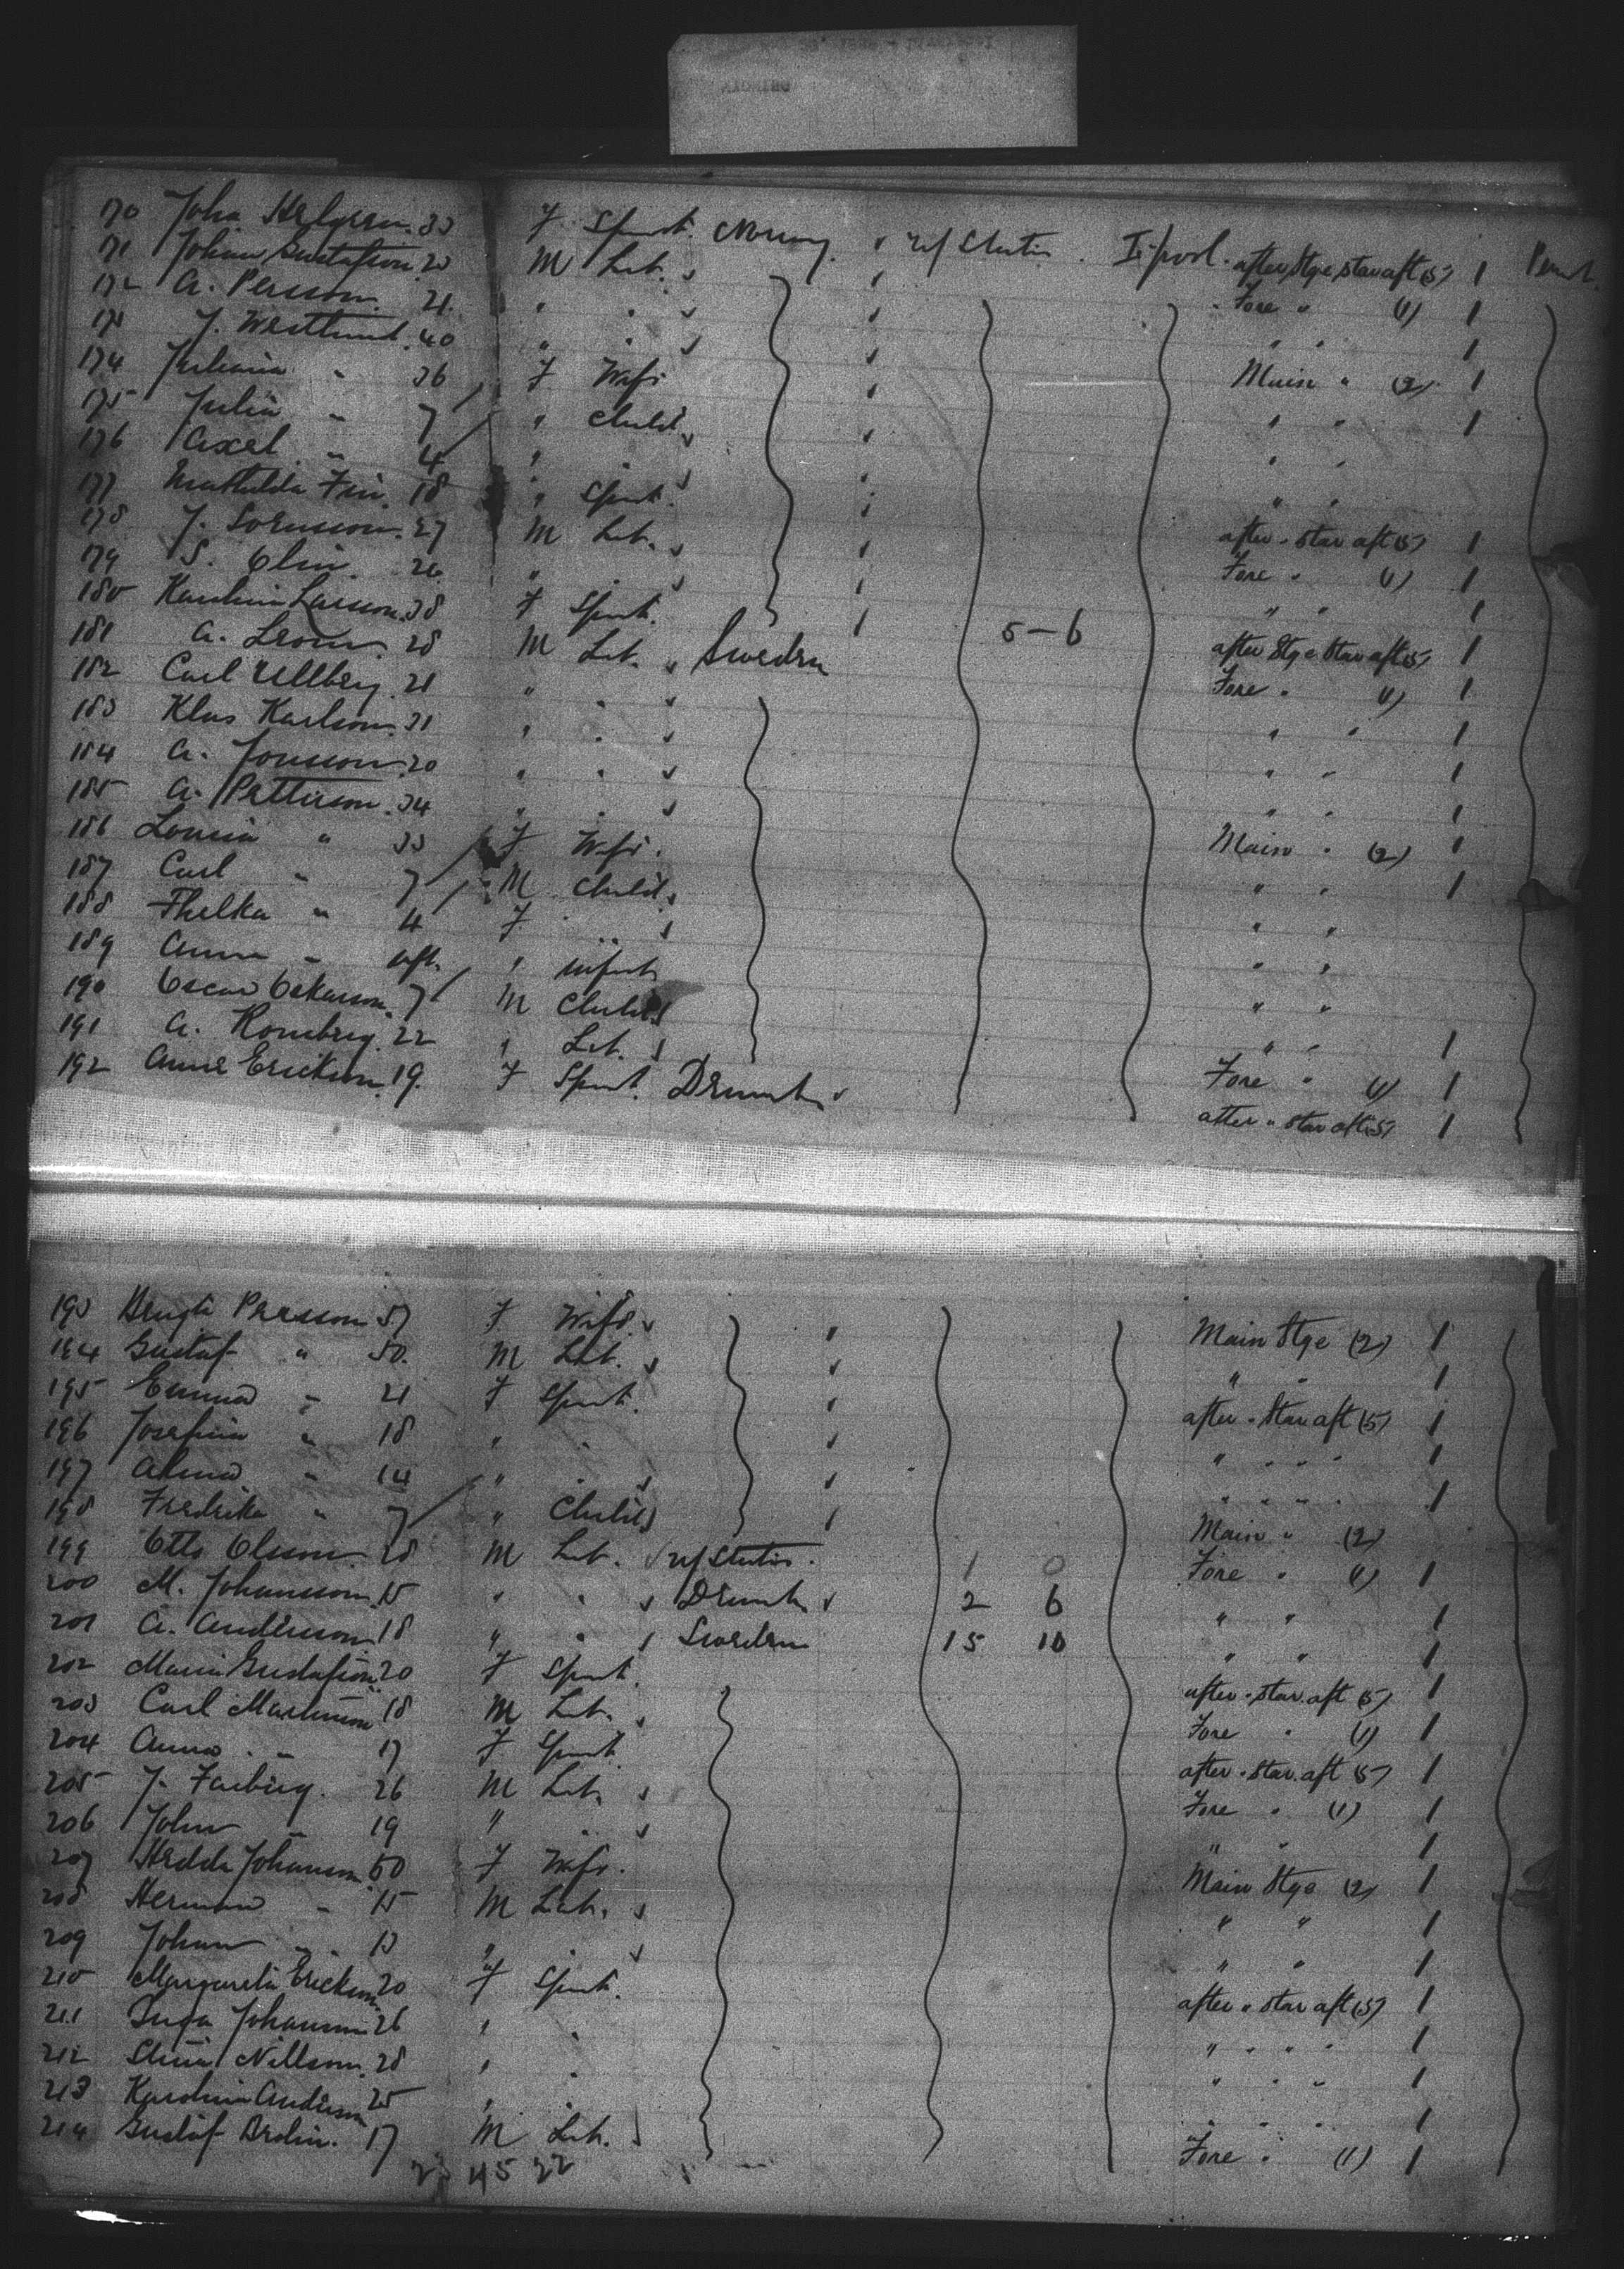 170 Joha Helgren 33 F Spinst. Norway U/States L'pool after Stge star aft (5) 1 Perm't
171 Johan Gustafson 20 M Lab. Fore " (1) 1
172 A. Persson 21 " " " " 1
173 J. Westlund 40 " " Main " (2) 1
174 Juliana " 36 F Wife " " 1
175 Julia " 7 " Child " "
176 Axel " 4 " " " "
177 Mathilda Fri 18 " Spinst. after " star aft (5) 1
178 J. Sorensson 27 M Lab. Fore " (1) 1
179 S. Olin 26 " " " " 1
180 Karolina Larsson 38 F Spinst. 5-6 after Stge star aft (5) 1
181 A. Leom 28 M Lab. Sweden Fore " (1) 1
182 Carl Ullberg 21 " " " " 1
183 Klas Karlson 31 " " " " 1
184 A. Jonsson 20 " " " " 1
185 A. Petterson 34 " " Main " (2) 1
186 Lovisa " 33 F Wife " " 1
187 Carl " 7 M Child " "
188 Thelka " 4 F " " "
189 Anna " inft. " infant " "
190 Oscar Oskarson 7 M Child " " 1
191 A. Romberg 22 " Lab. Fore " (1) 1
192 Anne Erickson 19 F Spinst. Denmark after " star aft (5) 1
193 Bengta Persson 57 F Wife Main Stge (2) 1
194 Gustaf " 50 M Lab. " " 1
195 Emma " 21 F Spinst. after " Star aft (5) 1
196 Josefina " 18 " " " " " " 1
197 Alma " 14 " " " " " " 1
198 Fredrika " 7 " Child Main " (2)
199 Otto Olsson 28 M Lab. U/States 1 0 Fore " (1) 1
200 M. Johansson 15 " " Denmark 2 6 " " 1
201 A. Andersson 18 " " Sweden 15 10 " " 1
202 Maria Gustafson 20 F Spinst. after " star aft (5) 1
203 Carl Martinson 18 M Lab. Fore " (1) 1
204 Anna " 17 F Spinst. after " star aft (5) 1
205 J. Farberg 26 M Lab. Fore " (1) 1
206 John " 19 " " " " 1
207 Hedda Johanson 50 F Wife Main Stge (2) 1
208 Herman " 15 M Lab. " " 1
209 Johan " 13 " " " " 1
210 Margareta Erickson 20 F Spinst. after " star aft (5) 1
211 Inga Johanson 26 " " " " " " 1
212 Stina Nillson 28 " " " " " 1
213 Karolina Anderson 25 " " " " " 1
214 Gustaf Brolin 17 M Lab. Fore " (1) 1
45 22